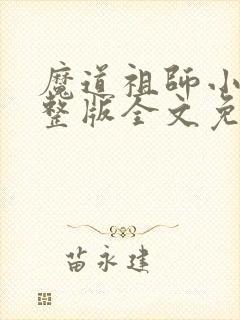 魔道祖师小
整版全文免
苗永建